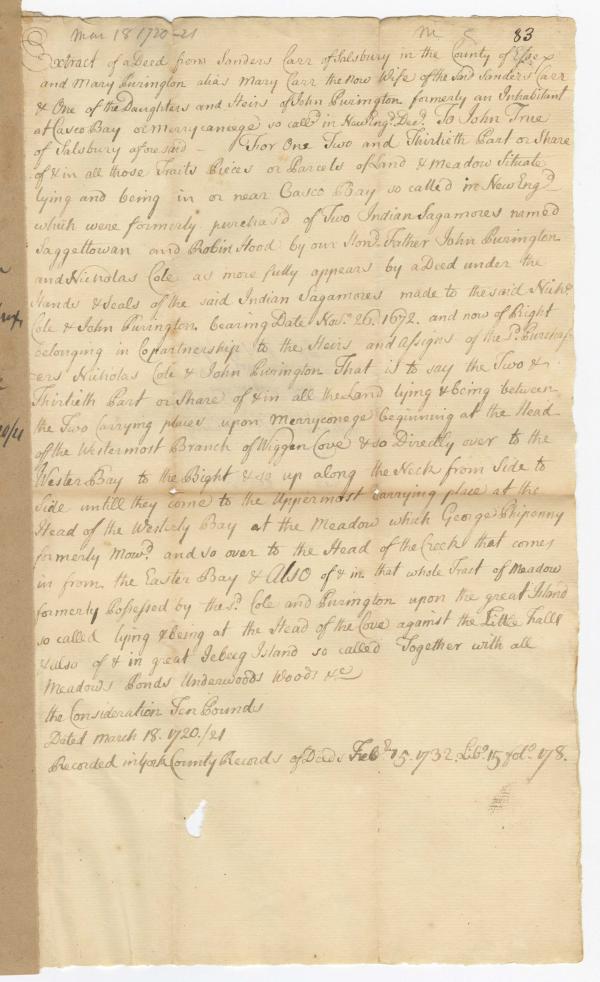 Mar 18 1720-21
83
Extract of a Deed from Sanders Carr of Salsbury in the County of Essex
and Mary Purington alias Mary Carr the now Wife of the said Sanders Carr
& One of the Daughters and Heirs of John Purington formerly an Inhabitant
at Casco Bay or Merrycaneege so call'd in New Engd. Decd. To John True
of Salsbury aforesaid - For One Two and Thirtieth Part or Share
of & in all those Tracts Pieces or Parcels of Land & Meadow Situate
lying and being in or near Casco Bay so called in New Engd.
which were formerly purchas'd of Two Indian Sagamores named
Saggettowan and Robin Hood by our Hond. Father John Purington
and Nicholas Cole as more fully appears by a Deed under the
Hands & Seals of the said Indian Sagamores made to the said Nichs.
Cole & John Purington bearing Date Novr. 26. 1672. and now of Right
belonging in Copartnership to the Heirs and Assigns of the sd. Purchas-
ers Nicholas Cole & John Purington That is to say the Two &
Thirtieth Part or Share of & in all the Land lying & being between
the Two Carrying places upon Merryconege beginning at the Head
of the Westermost Branch of Wiggen Cove & so Directly over to the
Wester Bay to the Bight & so up along the Neck from Side to
Side untill they come to the Uppermost Carrying place at the
Head of the Westerly Bay at the Meadow which George Phipenny
formerly Mowd. and so over to the Head of the Creek that comes
in from the Easter Bay & Also of & in that whole Tract of Meadow
formerly Possessed by the sd. Cole and Purington upon the great Island
so called lying & being at the Head of the Cove against the Little Falls
& also of & in great Jebeeg Island so called Together with all
Meadows Ponds Underwoods Woods &c
the Consideration Ten Pounds
Dated March 18. 1720/21
Recorded in York County Records of Deeds Feb. 15. 1732. Libo. 15 folo. 178.